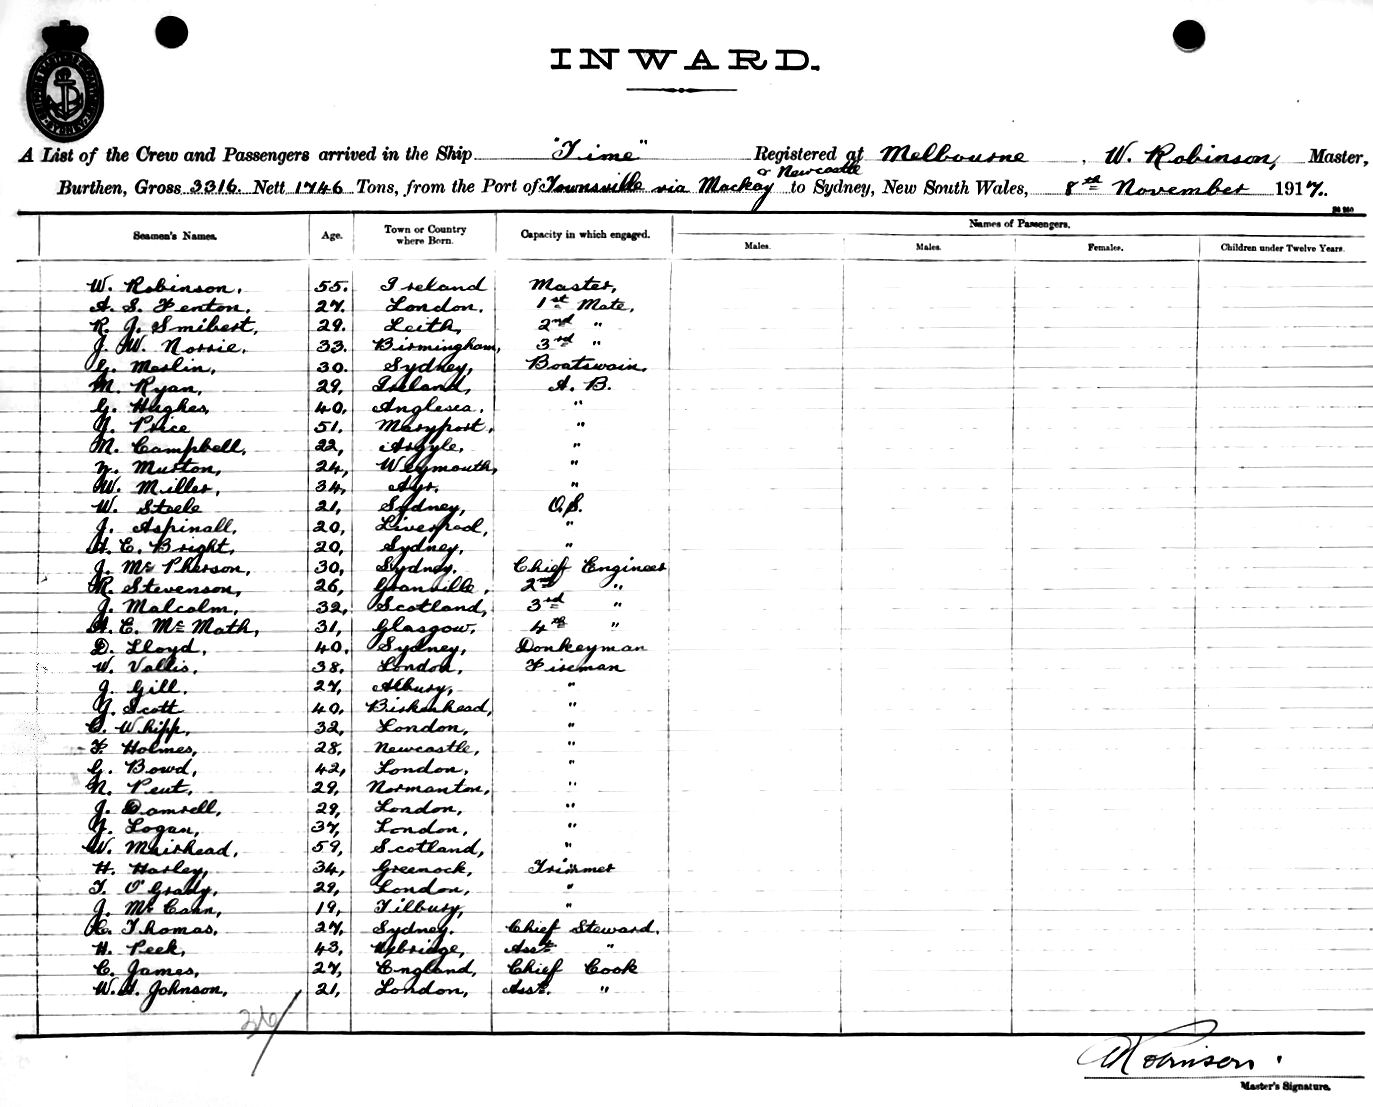 INWARD.
A List of the Crew and Passengers arrived in the Ship "Time" Registered at Melbourne, W. Robinson, Master,
Burthen, Gross 3316. Nett 1746 Tons, from the Port of Townsville via Mackay & Newcastle to Sydney, New South Wales, 8th November 1917.
Seamen's Names. Age. Town or Country where Born. Capacity in which engaged. Names of Passengers.
Males. Males. Females. Children under Twelve Years.
W. Robinson, 55. Ireland Master,
A. S. Fenton, 27. London, 1st Mate,
R. J. Smibert, 29. Leith, 2nd "
J. W. Norrie, 33. Birmingham, 3rd "
G. Merlin, 30. Sydney, Boatswain,
M. Ryan, 29, Ireland, A. B.
G. Hughes, 40, Anglesea, "
J. Price 51, Maryport, "
M. Campbell, 22, Argyle, "
Murton, 24, Weymouth, "
W. Miller, 34, Ayr, "
W. Steele 21, Sydney, O.S.
J. Aspinall, 20, Liverpool, "
H. E. Bright, 20, Sydney, "
J. McPherson, 30, Sydney, Chief Engineer
R. Stevenson, 26, Granville, 2nd "
J. Malcolm, 32, Scotland, 3rd "
A. E. McMath, 31, Glasgow, 4th "
D. Lloyd, 40, Sydney, Donkeyman
W. Vallis, 38, London, Fireman
J. Gill, 27, Albury, "
J. Scott 40, Birkenhead, "
C. Whipp, 32, London, "
F. Holmes, 28, Newcastle, "
G. Bowd, 42, London, "
N. Peut, 29, Normanton, "
J. Damrell, 29, London, "
J. Logan, 37, London, "
W. Muirhead, 59, Scotland, "
H. Harley, 34, Greenock, Trimmer
T. O'Grady, 29, London, "
J. McCann, 19, Tilbury, "
Thomas, 27, Sydney, Chief Steward,
H. Peek, 43, Uxbridge, Asst. "
C. James, 27, England, Chief Cook
W. A. Johnson, 21, London, Asst. "
36/
W Robinson.
Master's Signature.